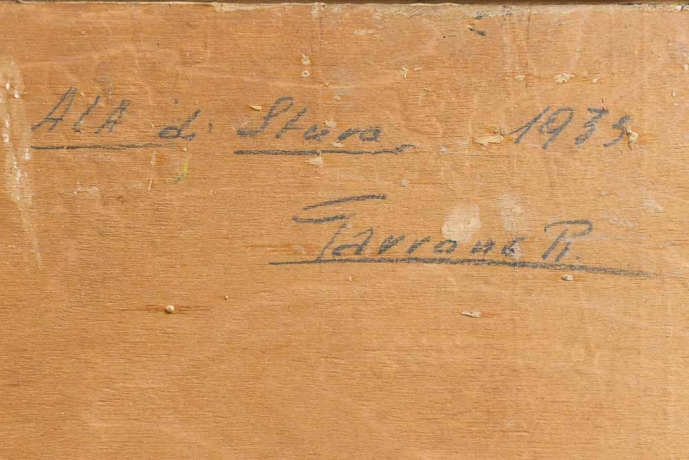 Ala di Stura 1939
Garrone R.